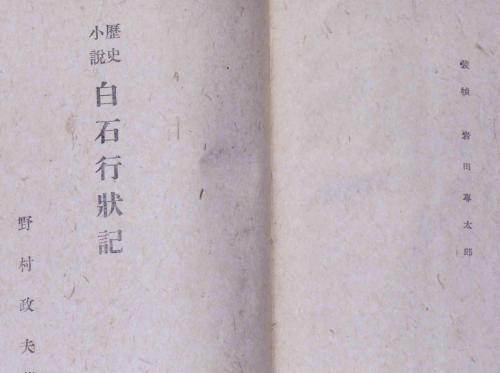 装幀 岩田専太郎
歴史
小説
白石行狀記
野村政夫